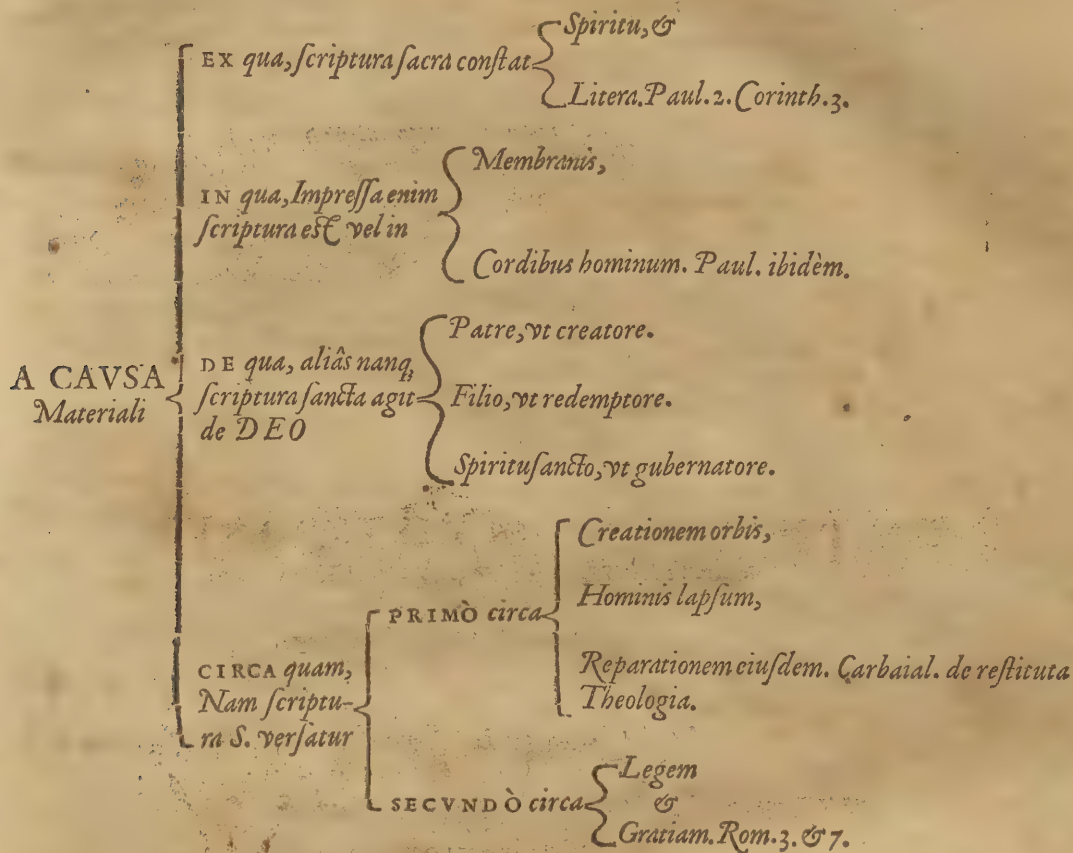 A CAVSA
Materiali
EX qua, ſcriptura ſacra conſtat
Spiritu, &
Litera. Paul. 2. Corinth. 3.
IN qua, Impreſſa enim
ſcriptura eſt vel in
Membranis,
Cordibus hominum. Paul. ibidèm.
DE qua, aliâs nanq;
ſcriptura ſancta agit
de DEO
Patre, vt creatore.
Filio, vt redemptore.
Spirituſancto, vt gubernatore.
CIRCA quam,
Nam ſcriptu-
ra S. verſatur
PRIMÒ circa
Creationem orbis,
Hominis lapſum,
Reparationem eiuſdem. Carbaial. de reſtituta
Theologia.
SECVNDÒ circa
Legem
&
Gratiam. Rom. 3. & 7.